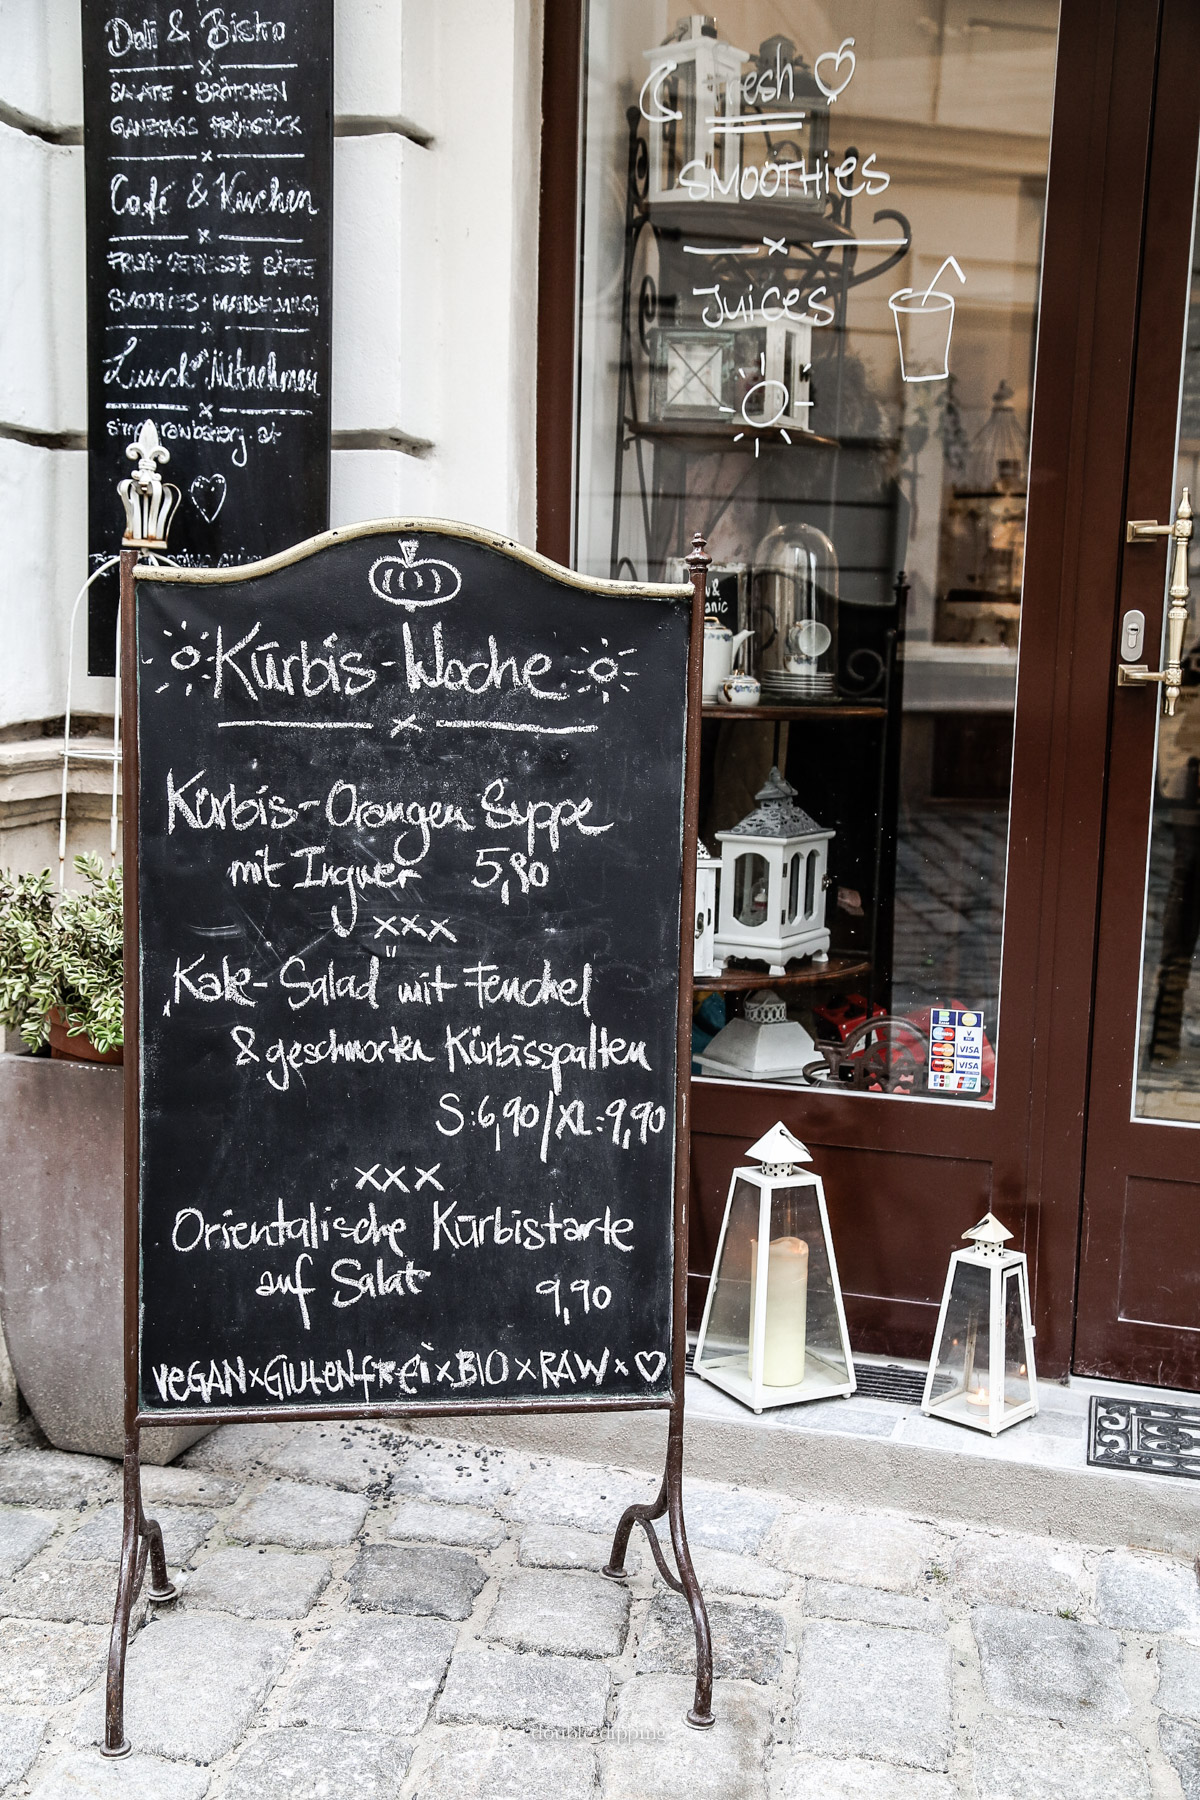 Deli & Bistro
SALATE · BRÖTCHEN
GANZTAGS FRÜHSTÜCK
Café & Kuchen
FRISCH GEPRESSTE SÄFTE
SMOOTHIES · MANDELMILCH
Lunch "Mitnehmen
simplyrawbakery.at
Fresh
SMOOTHIES
Juices
&
anic
VISA
VISA
Kürbis-Woche
Kürbis-Orangen Suppe
mit Ingwer 5,90
xxx
"Kale-Salad" mit Fenchel
& geschmorten Kürbisspalten
S:6,90/XL:9,90
xxx
Orientalische Kürbistarte
auf Salat 9,90
VEGAN x GlutenfrEi x BIO x RAW x ♡
double dipping